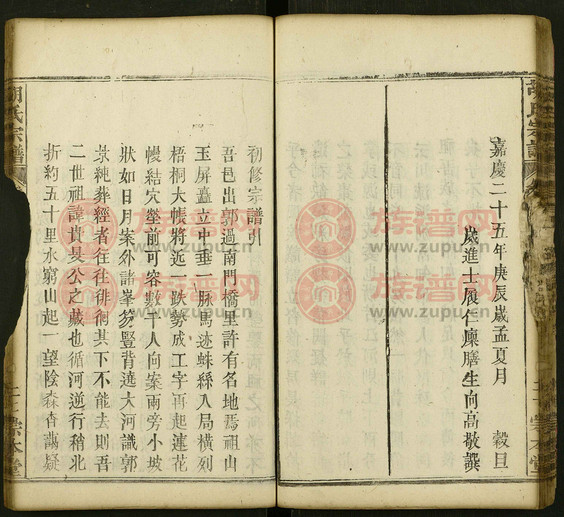 嘉慶二十五年庚辰歲孟夏月 穀旦
歲進士履仁廩膳生向高敬譔
初修宗譜引
吾邑出郭過南門橋里許有名地焉祖山
玉屏矗立中垂一脉馬迹蛛絲入局橫列
梧桐大帳將近一跌勢成工字再起蓮花
幔結穴塋前可容數千人向案兩旁小坡
狀如日月案外諸峯易豎背遶大河識郭
景純葬經者往往徘徊其下不能去則吾
二世祖諱貴昊公之藏也循河逆行稍北
折約五十里水窮山起一望陰森杳藹疑
胡氏宗譜
二
崇本堂
族谱网
www.zupu.cn